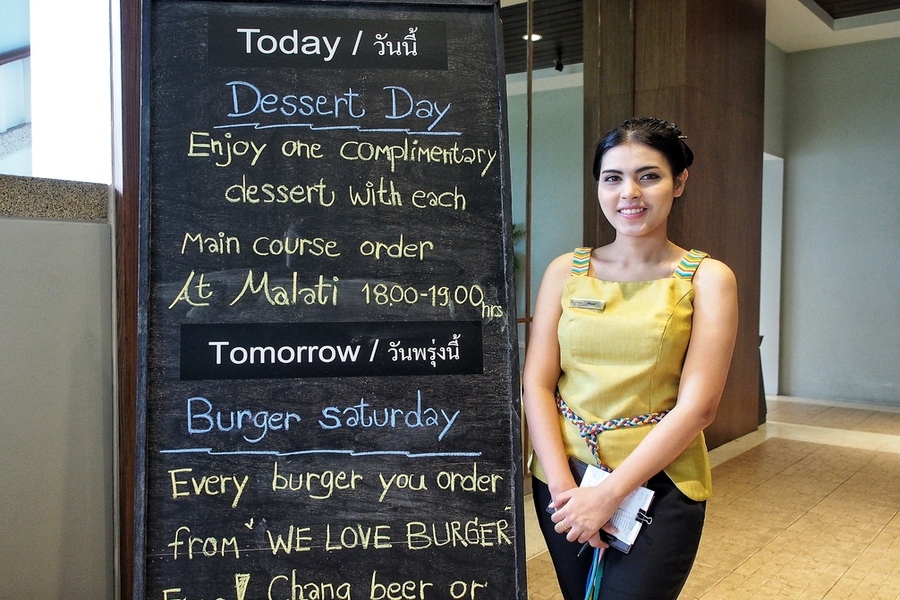 Today / วันนี้
Dessert Day
Enjoy one complimentary
dessert with each
Main course order
At Malati 18.00-19.00 hrs
Tomorrow / วันพรุ่งนี้
Burger saturday
Every burger you order
from "WE LOVE BURGER"
Chang beer or